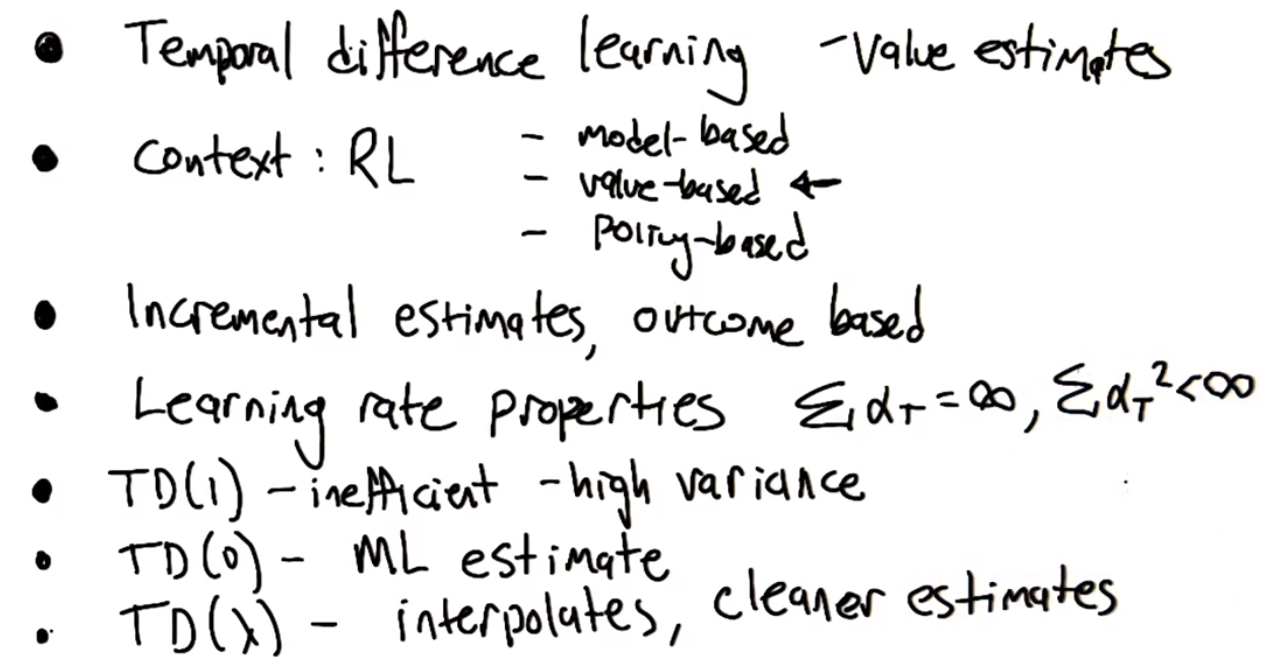 • Temporal difference learning - value estimates
• Context : RL - model-based
- value-based ←
- policy-based
• Incremental estimates, outcome based
• Learning rate properties Σ α_T = ∞, Σ α_T² < ∞
• TD(1) - inefficient - high variance
• TD(0) - ML estimate
• TD(λ) - interpolates, cleaner estimates